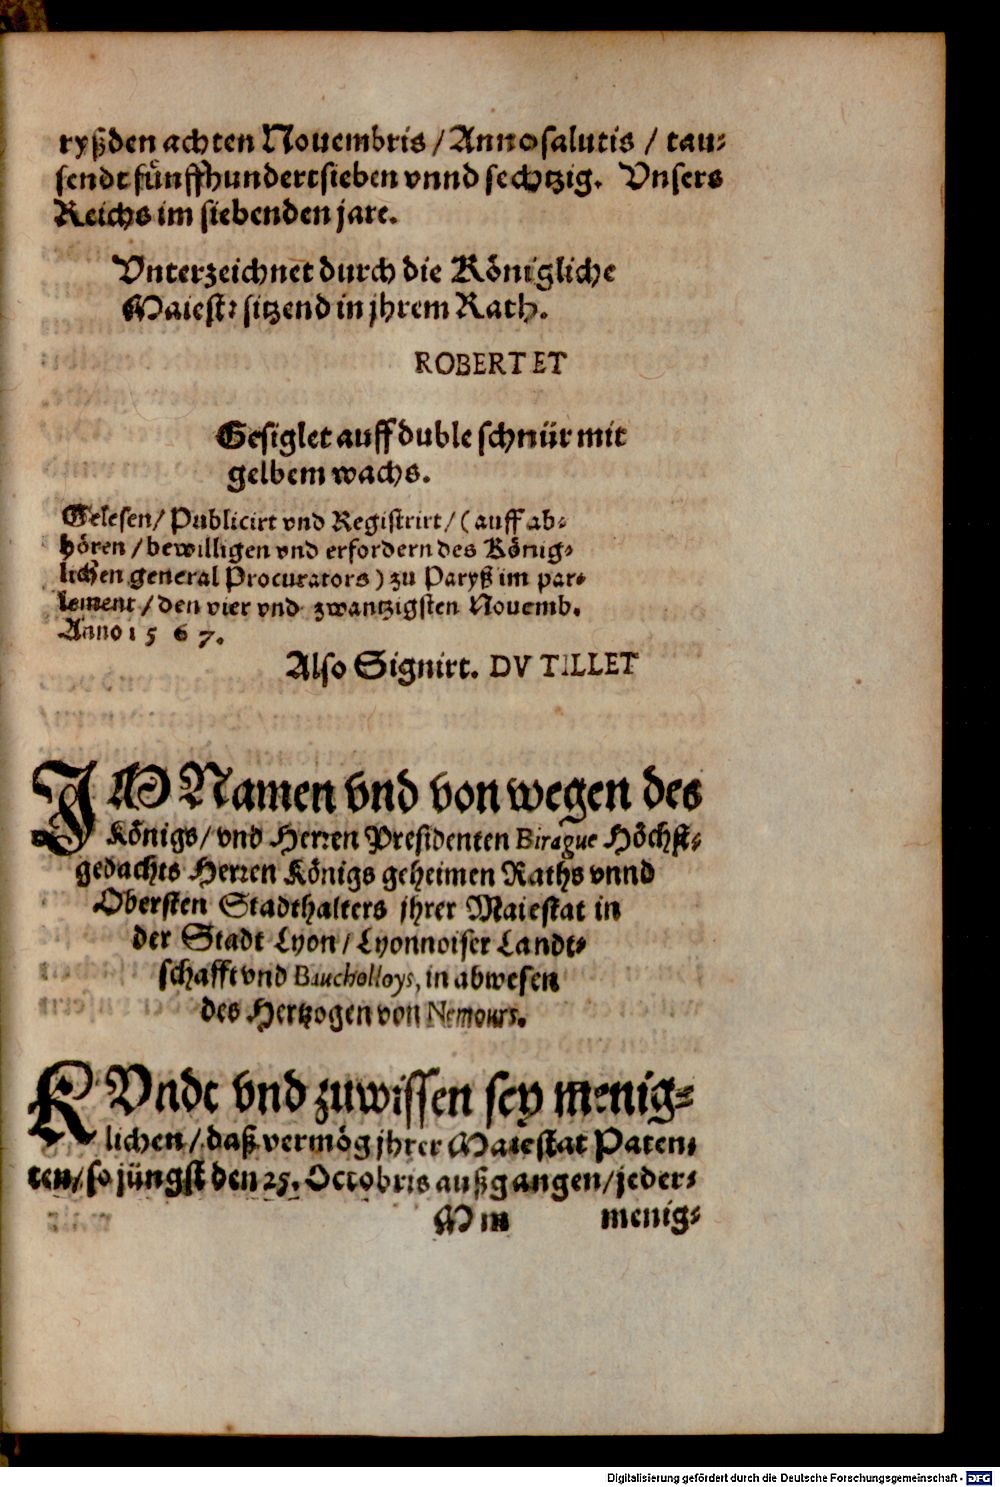 ryßden achten Nouembris / Anno salutis / tau-
sendt fünffhundertsieben vnnd sechtzig. Vnsers
Reichs im siebenden jare.
Vnterzeichnet durch die Königliche
Maiest: sitzend in jhrem Rath.
ROBERTET
Gesiglet auff duble schnür mit
gelbem wachs.
Gelesen / Publicirt vnd Registrirt / (auff ab-
hören / bewilligen vnd erfordern des König-
lichen general Procurators) zu Paryß im par-
lement / den vier vnd zwantzigsten Nouemb.
Anno 1567.
Also Signirt. DV TILLET
IM Namen vnd von wegen des
Königs / vnd Herren Presidenten Birague Höchst-
gedachts Herren Königs geheimen Raths vnnd
Obersten Stadthalters jhrer Maiestat in
der Stadt Lyon / Lyonnoiser Landt-
schafft vnd Baucholloys, in abwesen
des Hertzogen von Nemours.
KVndt vnd zuwissen sey menig-
lichen / daß vermög jhrer Maiestat Paten-
ten / so jüngst den 25. Octobris außgangen / jeder-
M m menig-
Digitalisierung gefördert durch die Deutsche Forschungsgemeinschaft - DFG